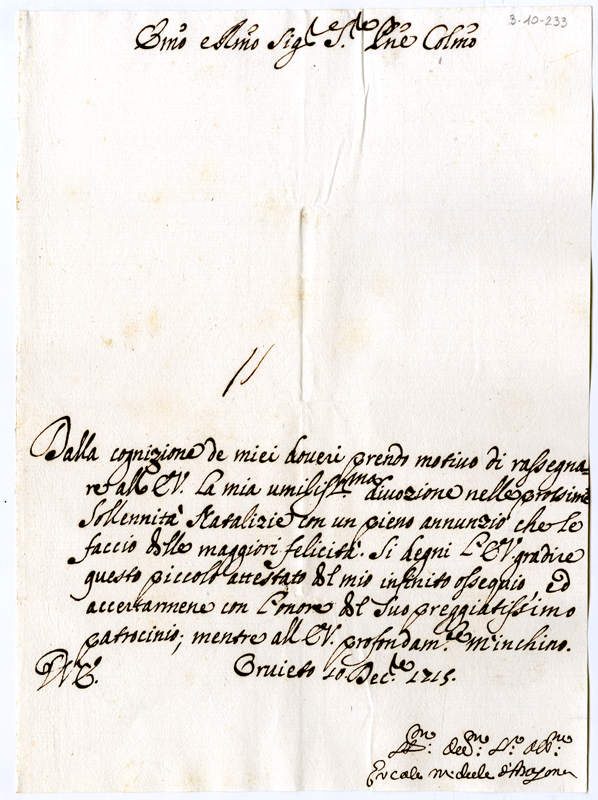 3-10-233
Emo e Rmo Sig.re S.re Pne Colmo
Dalla cognizione de miei doveri prendo motivo di rassegna
re all'EV. La mia umiliss.ma divozione nelle prossime
Sollennità Natalizie con un pieno annunzio che le
faccio delle maggiori felicità. Si degni L'EV. gradire
questo piccolo attestato del mio infinito ossequio ed
accertarmene con L'onore del Suo preggiatissimo
patrocinio; mentre all'EV. profondam.te m'inchino.
Orvieto 10 Dec.re 1715.